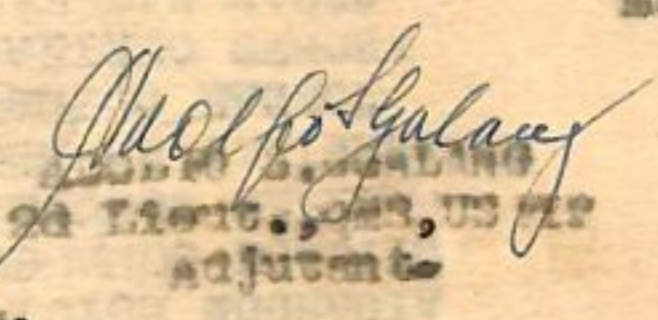 Adolfo S Galang
ADOLFO S. GALANG
2d Lieut., US
Adjutant